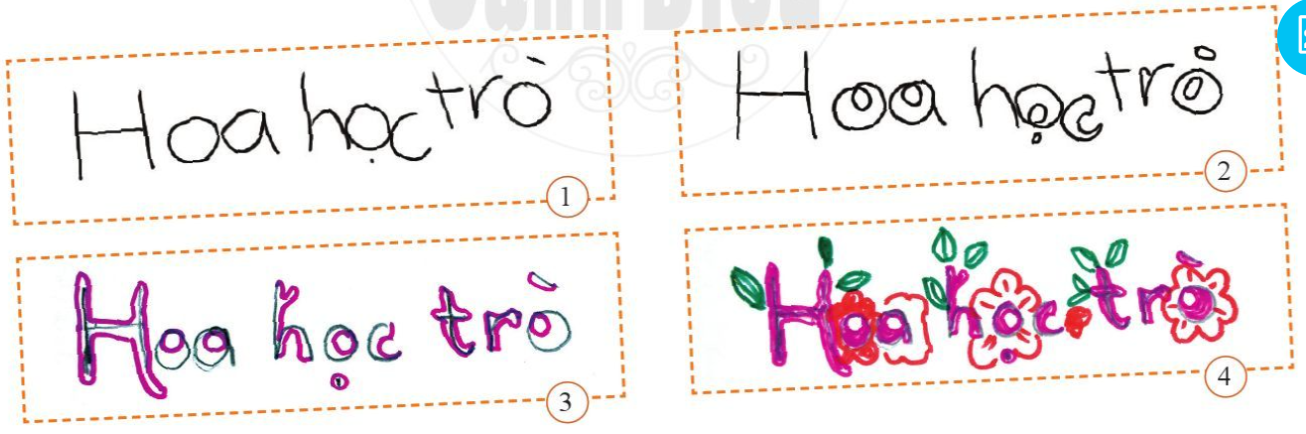 Hoa học trò
1
Hoa học trò
2
Hoa học trò
3
Hoa học trò
4